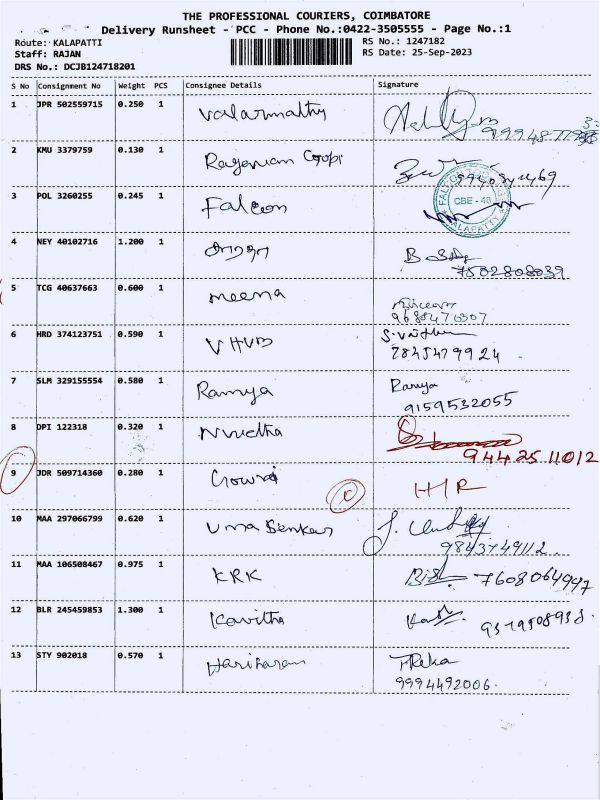 THE PROFESSIONAL COURIERS, COIMBATORE
Delivery Runsheet - PCC - Phone No.:0422-3505555 - Page No.:1
Route: KALAPATTI
RS No.: 1247182
Staff: RAJAN
RS Date: 25-Sep-2023
DRS No.: DCJB124718201
S No Consignment No Weight PCS Consignee Details Signature
1 JPR 502559715 0.250 1 Valarmathy
2 KMU 3379759 0.130 1 Ragavan Gopi
3 POL 3260255 0.245 1 Falcon
CBE - 48
KALAPATTY
4 NEY 40102716 1.200 1
7502808039
5 TCG 40637663 0.600 1 meena
6 HRD 374123751 0.590 1 VHUB
7845479924.
7 SLM 329155554 0.580 1 Ramya Ramya
9159532055
8 DPI 122318 0.320 1 Nivetha
9442511012
9 JDR 509714360 0.280 1 Gowri H/R
10 MAA 297066799 0.620 1 Uma Sankar
9843749112.
11 MAA 106508467 0.975 1 KRK 7608064997
12 BLR 245459853 1.300 1 Kavitha
13 STY 902018 0.570 1 Hariharan
9994492006.